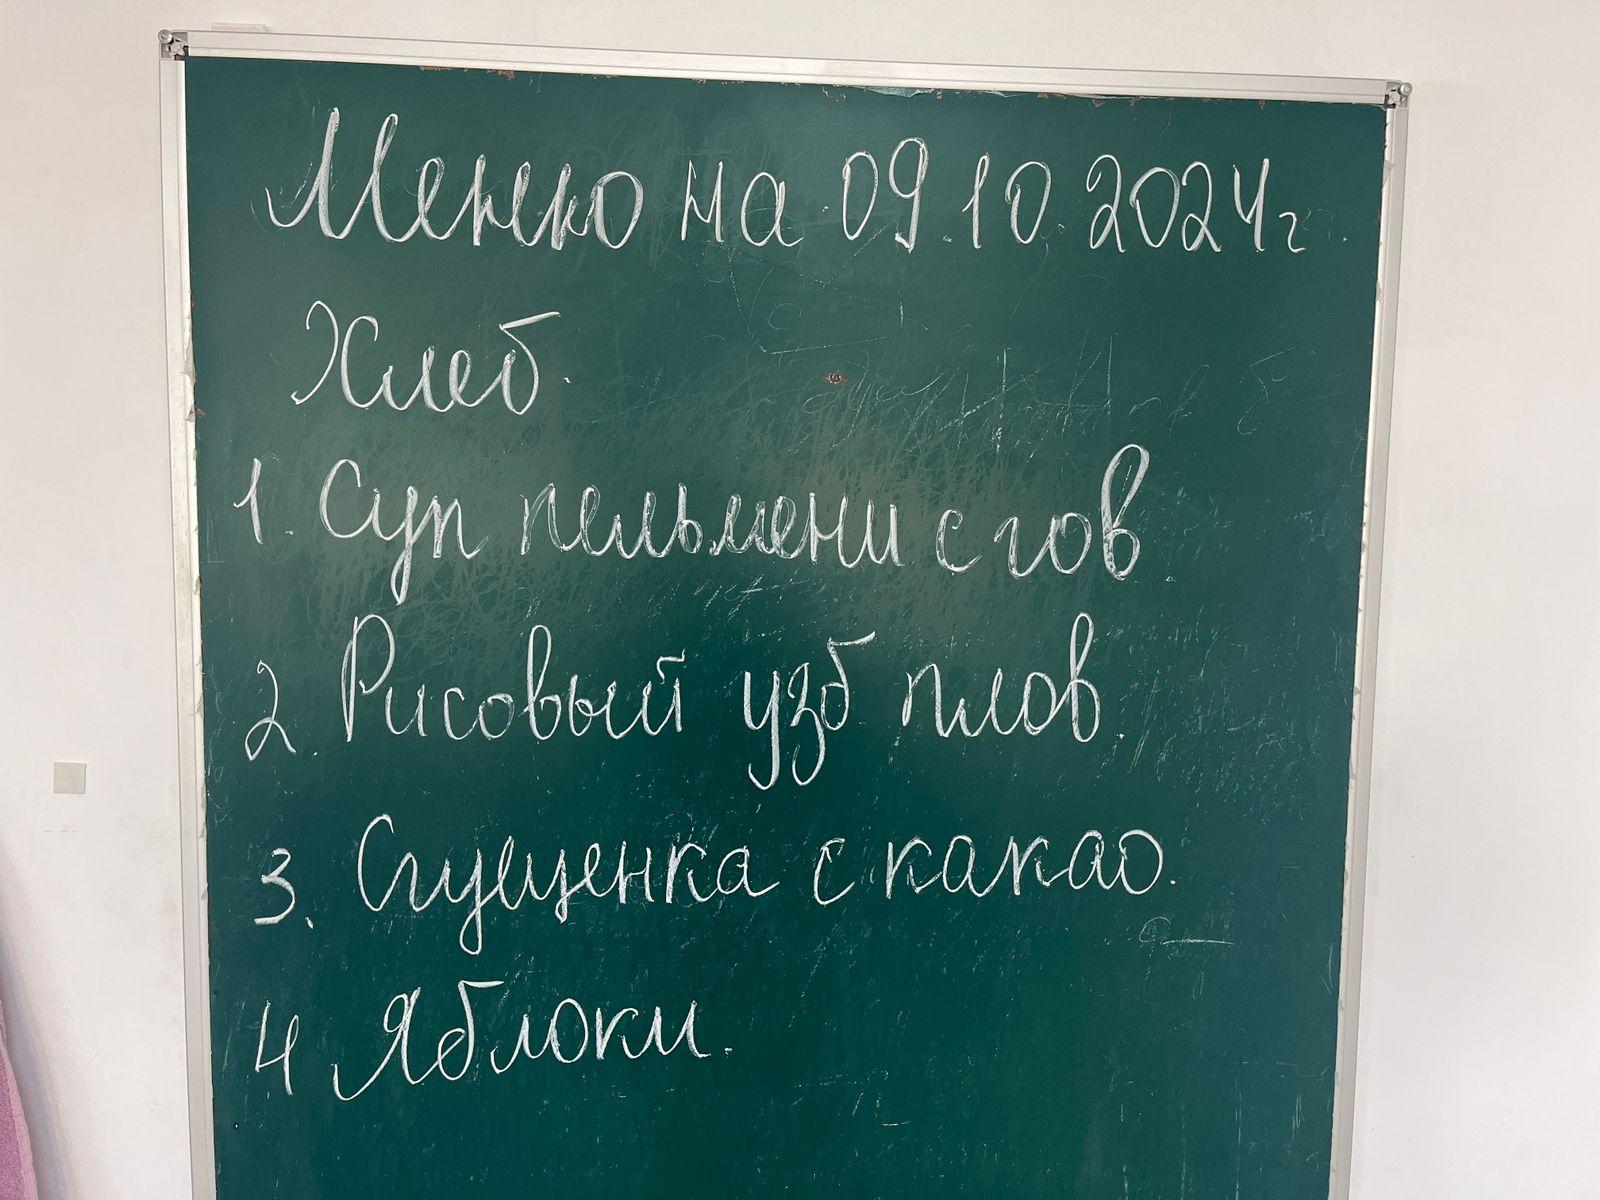 Меню на 09.10.2024г.
Хлеб.
1. Суп пельмени с гов.
2. Рисовый узб плов.
3. Сгущенка с какао.
4 Яблоки.